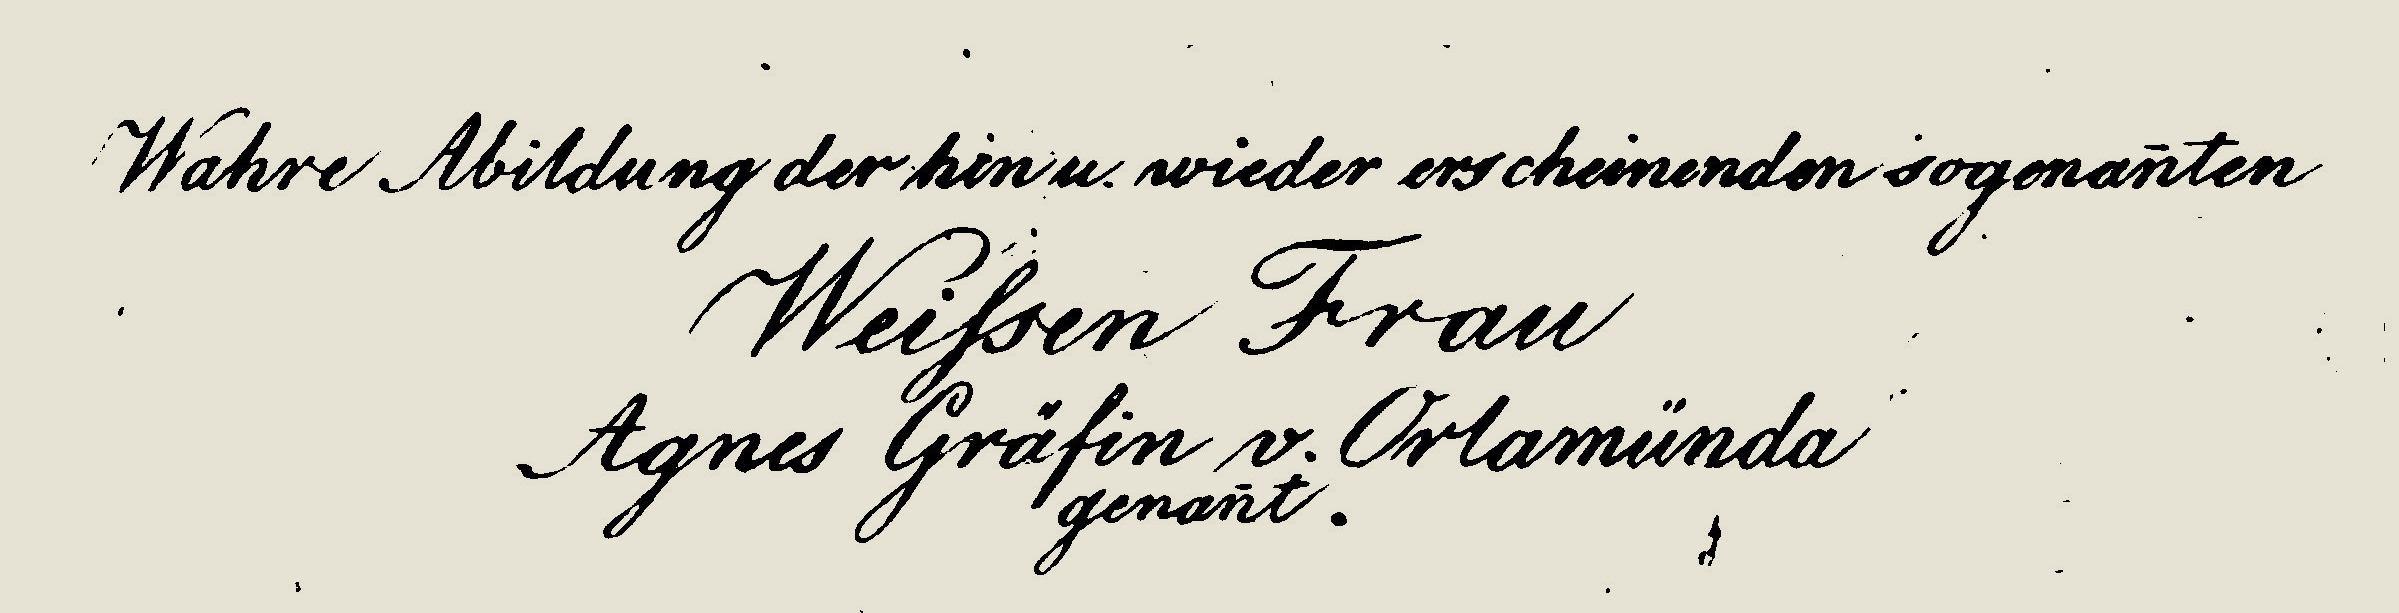 Wahre Abildung der hin u. wieder erscheinenden sogenan̄ten
Weiſsen Frau
Agnes Gräfin v. Orlamünda
genan̄t.